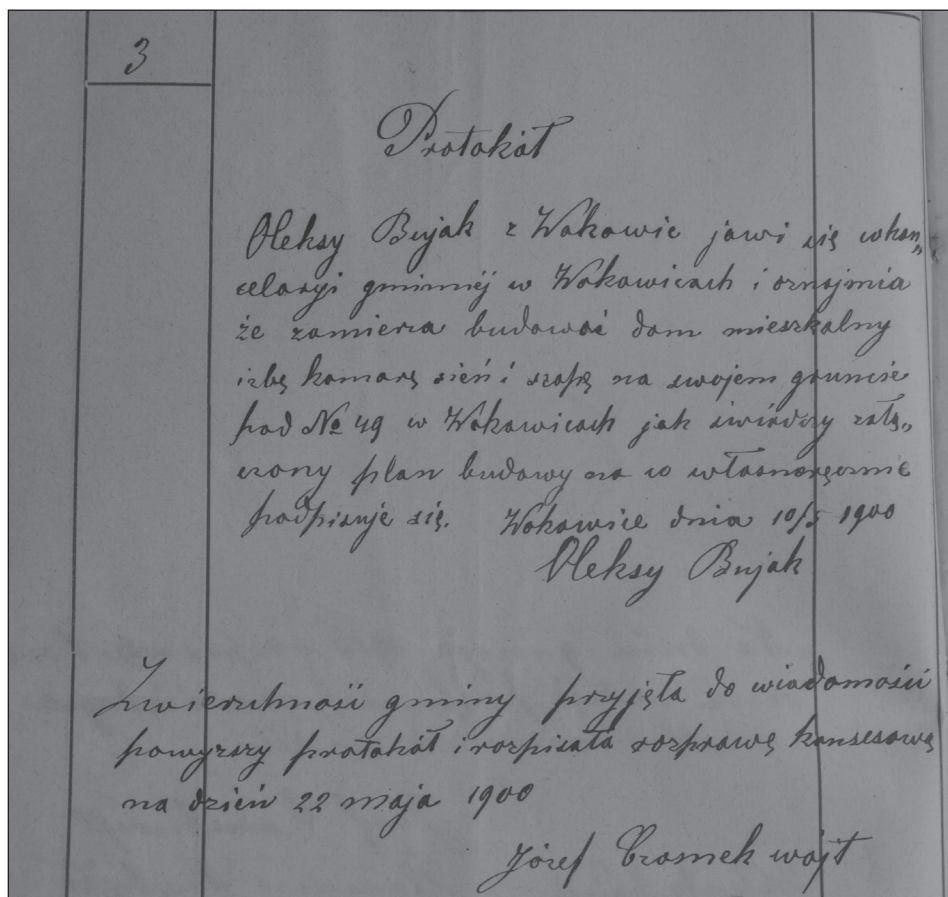 3
Protokół
Oleksy Bujak z Wokowic jawi się wkan„
celaryi gminnéj w Wokowicach i oznajmia
że zamierza budować dom mieszkalny
izbę komorę sień i szopę na swojem gruncie
pod № 49 w Wokowicach jak świadczy załą„
czony plan budowy na co własnoręcznie
podpisuje się. Wokowice dnia 10/5 1900
Oleksy Bujak
Zwierzchność gminy przyjęła do wiadomości
powyrzszy protokół i rozpisała rozprawę konsesową
na dzień 22 maja 1900
Józef Czosnek wójt